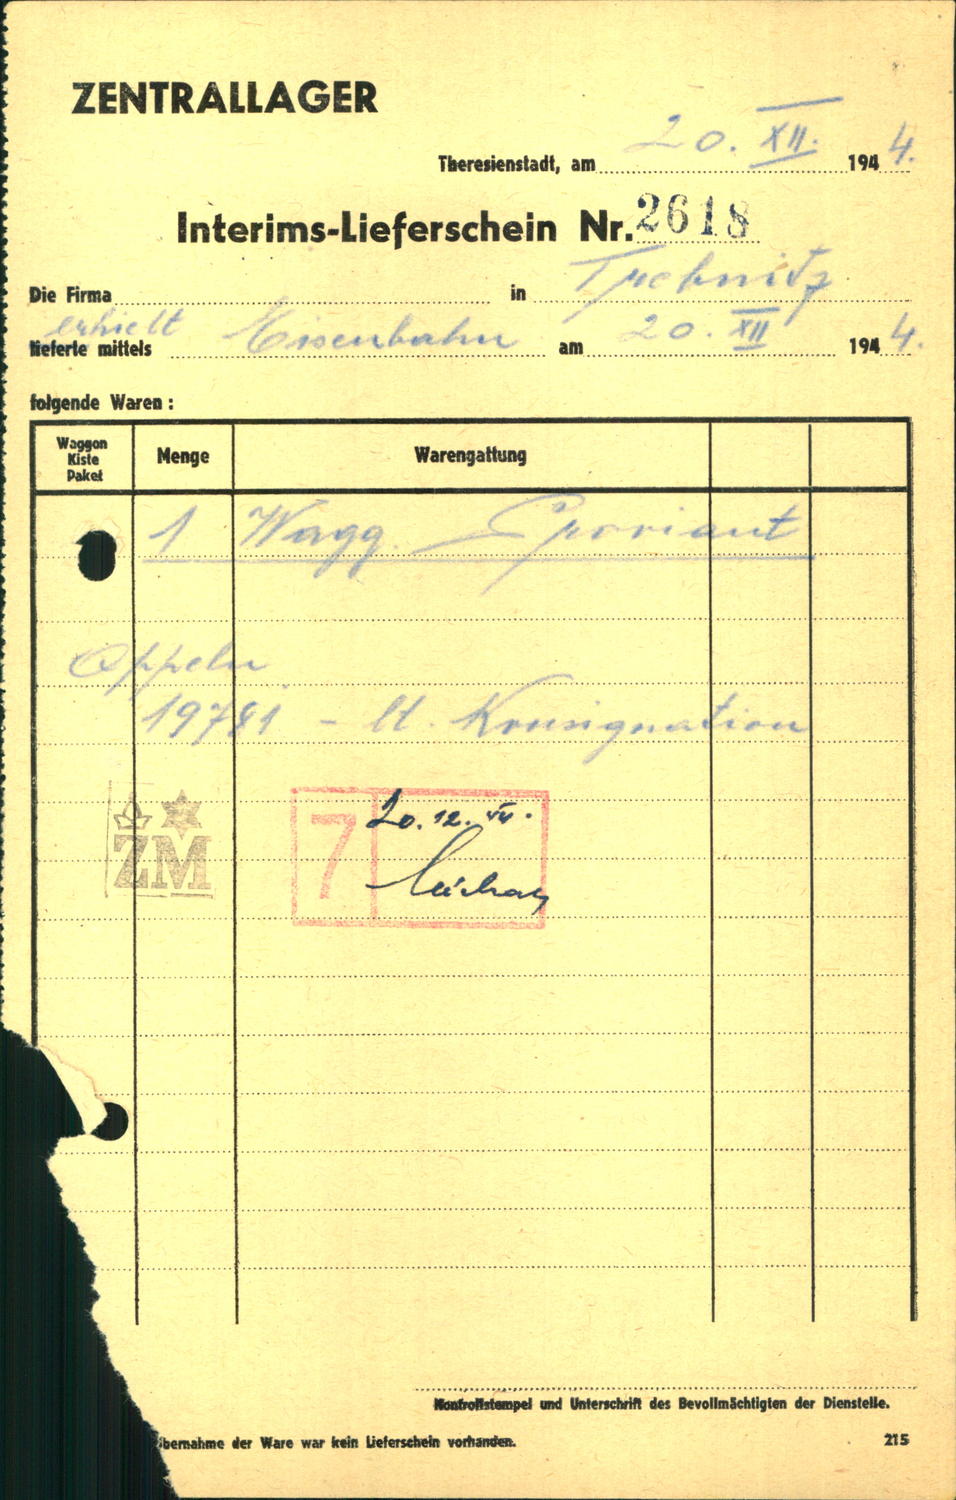 ZENTRALLAGER
Theresienstadt, am 20. XII. 194 4.
Interims-Lieferschein Nr. 2618
Die Firma in Trebnitz
erhielt
lieferte mittels Eisenbahn am 20. XII 194 4.
folgende Waren:
Waggon Kiste Paket Menge Warengattung
1 Wagg. Proviant
Oppeln
19781 - lt. Konsignation
ZM
7 20. 12.
Kontrollstempel und Unterschrift des Bevollmächtigten der Dienstelle.
bernahme der Ware war kein Lieferschein vorhanden. 215